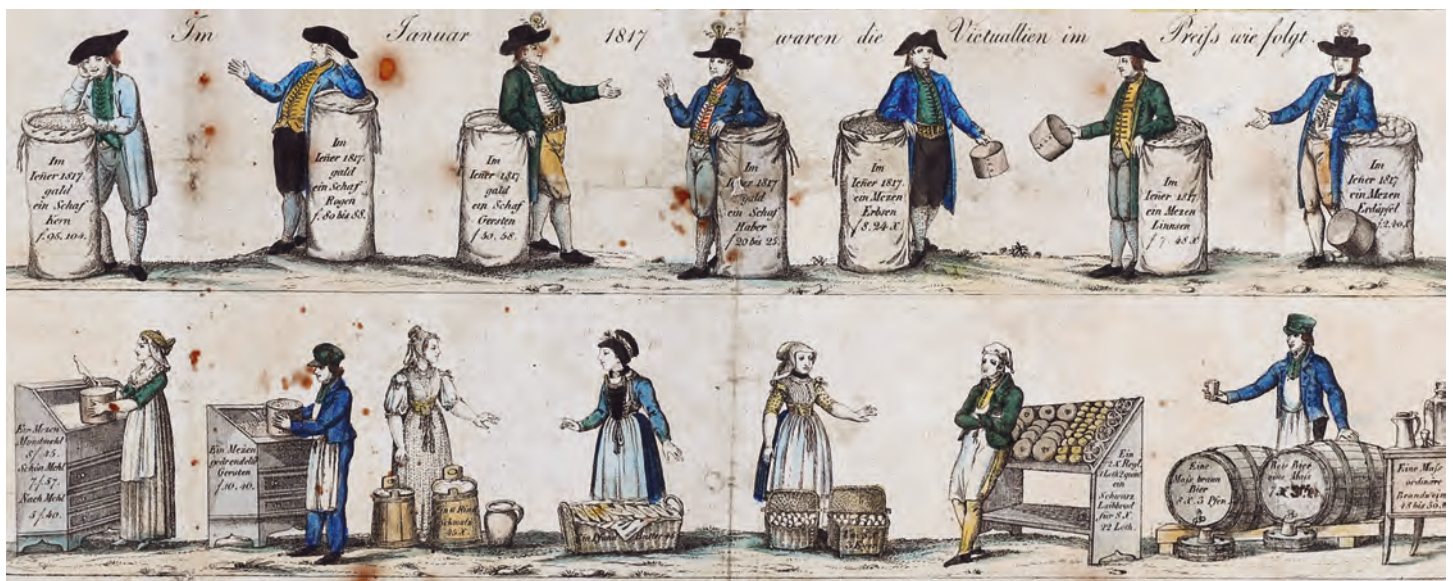 Im Januar 1817 waren die Victuallien im Preiſs wie folgt.
Im
Ieñer 1817.
gald
ein Schaf
Kern
f. 95. 104.
Im
Ieñer 1817.
gald
ein Schaf
Rogen
f. 80 bis 88.
Im
Ieñer 1817
gald
ein Schaf
Gersten
f 50. 58.
Im
1817
gald
ein Schaf
Haber
f 20 bis 25.
Im
Ieñer 1817.
ein Mezen
Erbsen
f 8. 24 x
Im
Ieñer 1817
ein Mezen
Linnsen
f 7. 48 x
Im
Ieñer 1817
ein Mezen
Erdäpfel
f 2. 40 x
Ein Mezen
Mundmehl
8 f 45.
Schön Mehl
7 f. 57.
Nach Mehl
5 f. 40.
Ein Mezen
Gersten
f. 10. 40.
Schmalz
45 x.
Ein
2 x Rogl
ein
Schwarz
Laibbrod
für 8 x.
22 Loth.
Eine
Maſs braun
Bier
8 x. 3 Pfen.
eine Maſs
7 x
Eine Maſs
ordinäre
Brandwein
48 bis